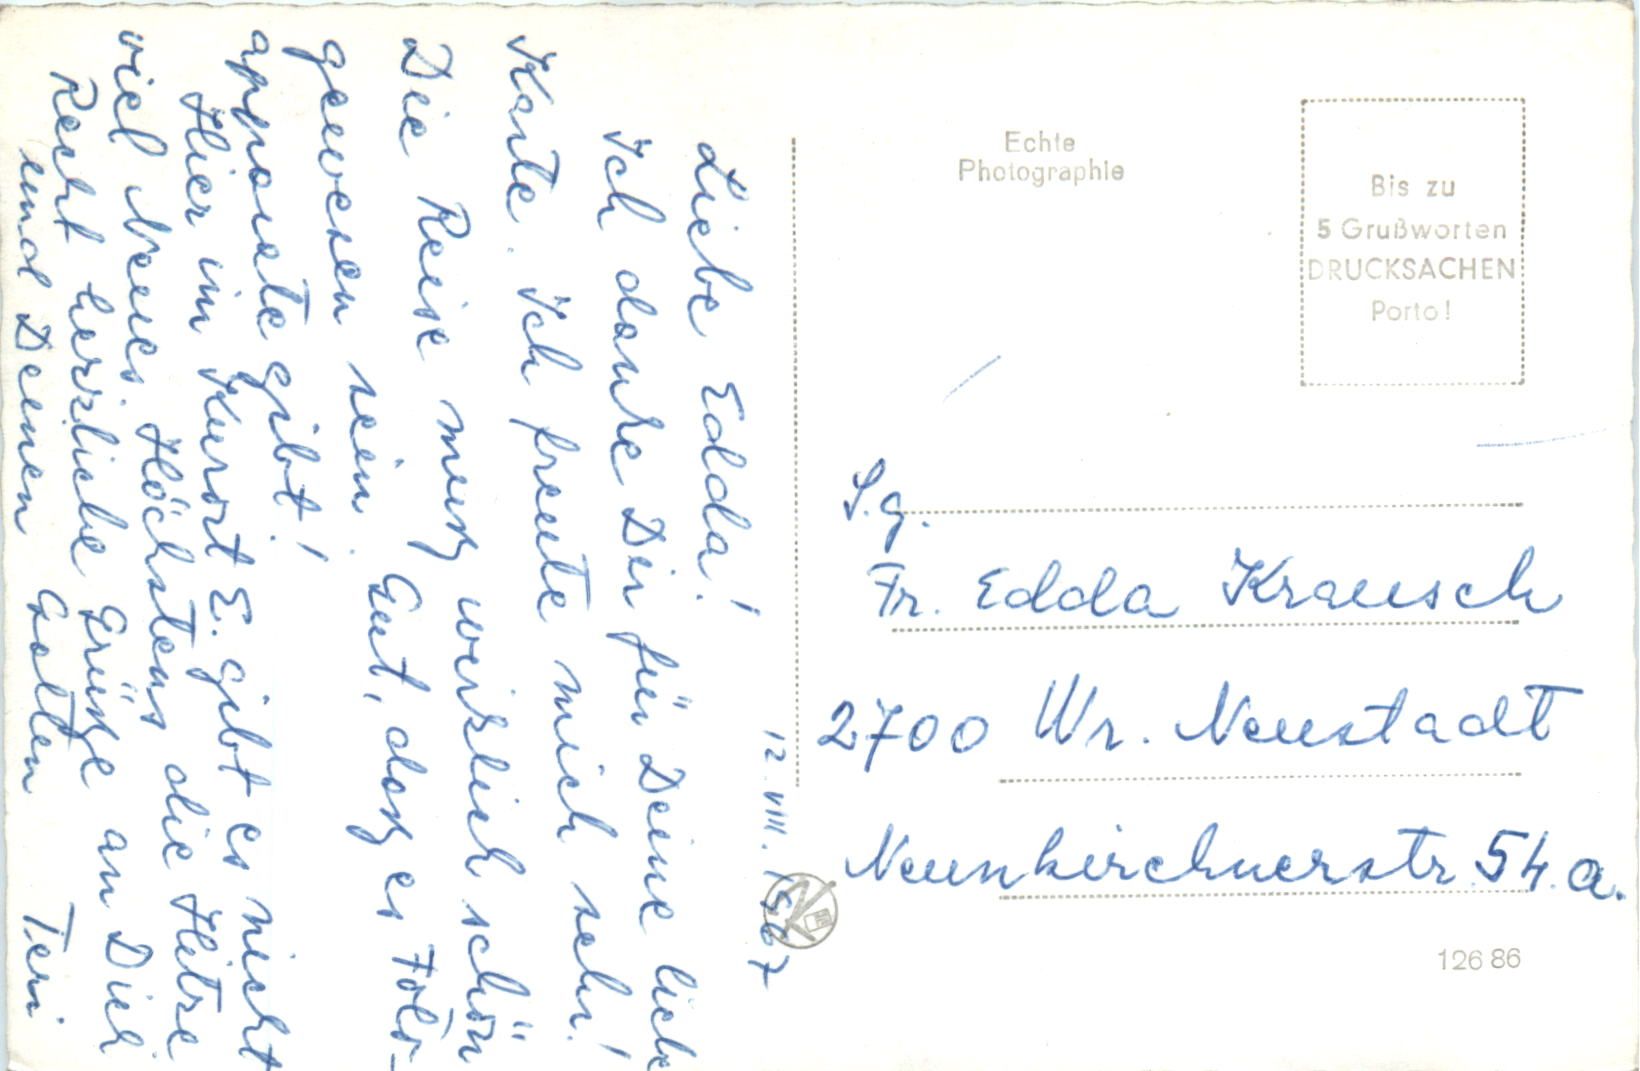 12. VIII. 1967
Liebe Edda!
Ich danke Dir für Deine liebe
Karte. Ich freute mich sehr!
Die Reise muß wirklich schön
gewesen sein. Gut, daß es Foto-
apparate gibt!
Hier im Kurort E. gibt es nicht
viel Neues. Höchstens die Hitze
Recht herzliche Grüße an Dich
und Deinen Gatten Teri
Echte
Photographie
Bis zu
5 Grußworten
DRUCKSACHEN
Porto!
S.g.
Fr. Edda Krausch
2700 Wr. Neustadt
Neunkirchnerstr. 54.a.
126 86